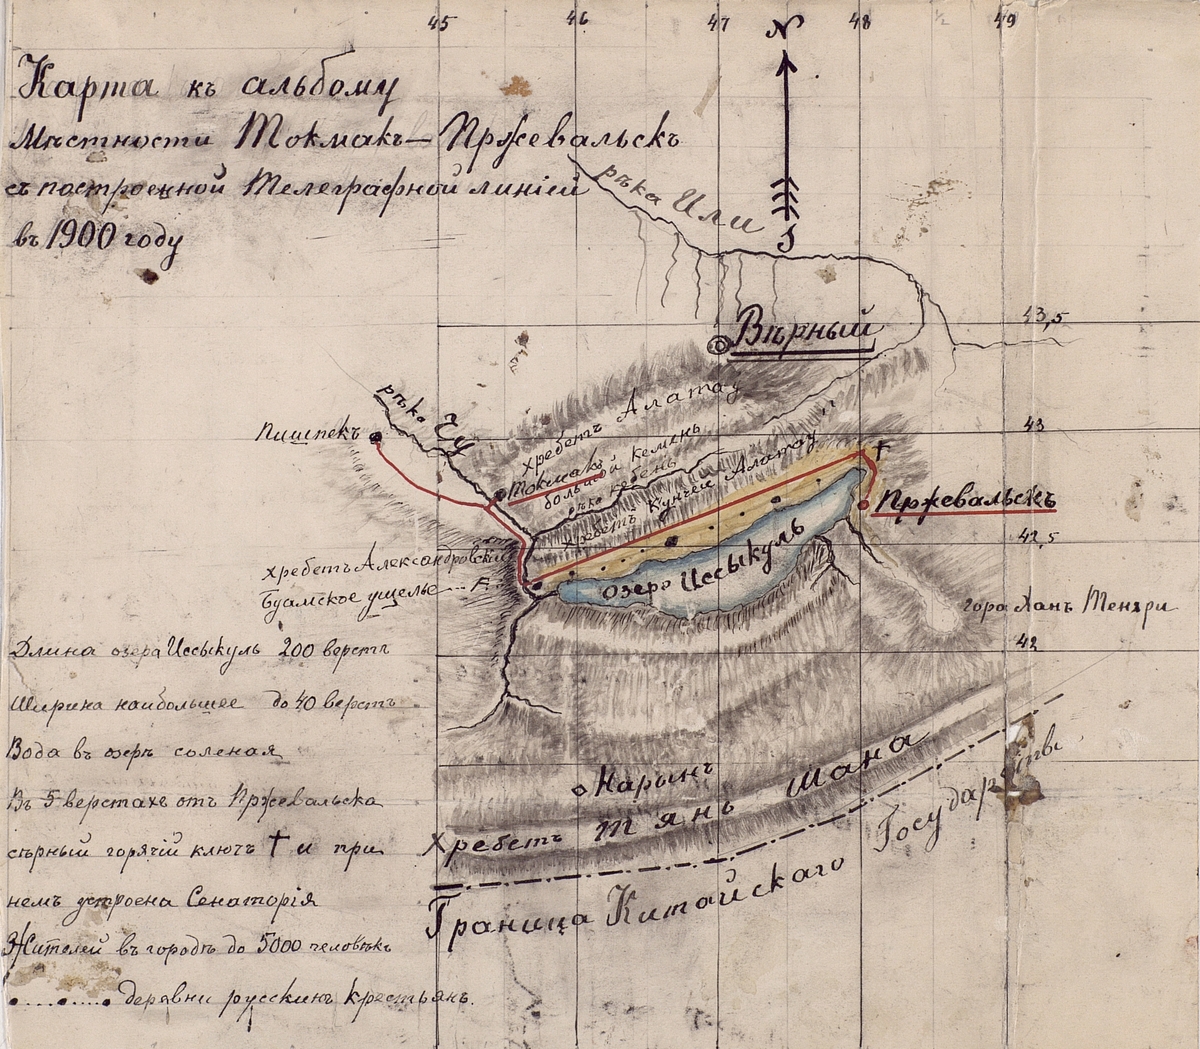 45 46 47 48 ½ 49
N
Карта къ альбому
Мѣстности Токмакъ—Пржевальскъ
съ построенной Телеграфной линіей
въ 1900 году
рѣка Или
S
43,5
Вѣрный
рѣка Чу
хребетъ Алатау
43
Пишпекъ
Токмакъ
большой кемень
рѣка кебень
хребетъ Кунгей Алатау
†
Пржевальскъ
42,5
хребетъ Александровский
Буамское ущелье
озеро Иссыкуль
гора Ханъ Тенгри
42
Длина озера Иссыкуль 200 верстъ
Ширина наибольшее до 40 верстъ
Вода въ озерѣ соленая
Въ 5 верстахъ отъ Пржевальска
сѣрный горячій ключъ † и при
немъ устроена Сенаторія
Жителей въ городѣ до 5000 человѣкъ
деравни русскихъ крестьянъ.
Нарынъ
Хребетъ Тянъ Шана
Граница Китайскаго Государства